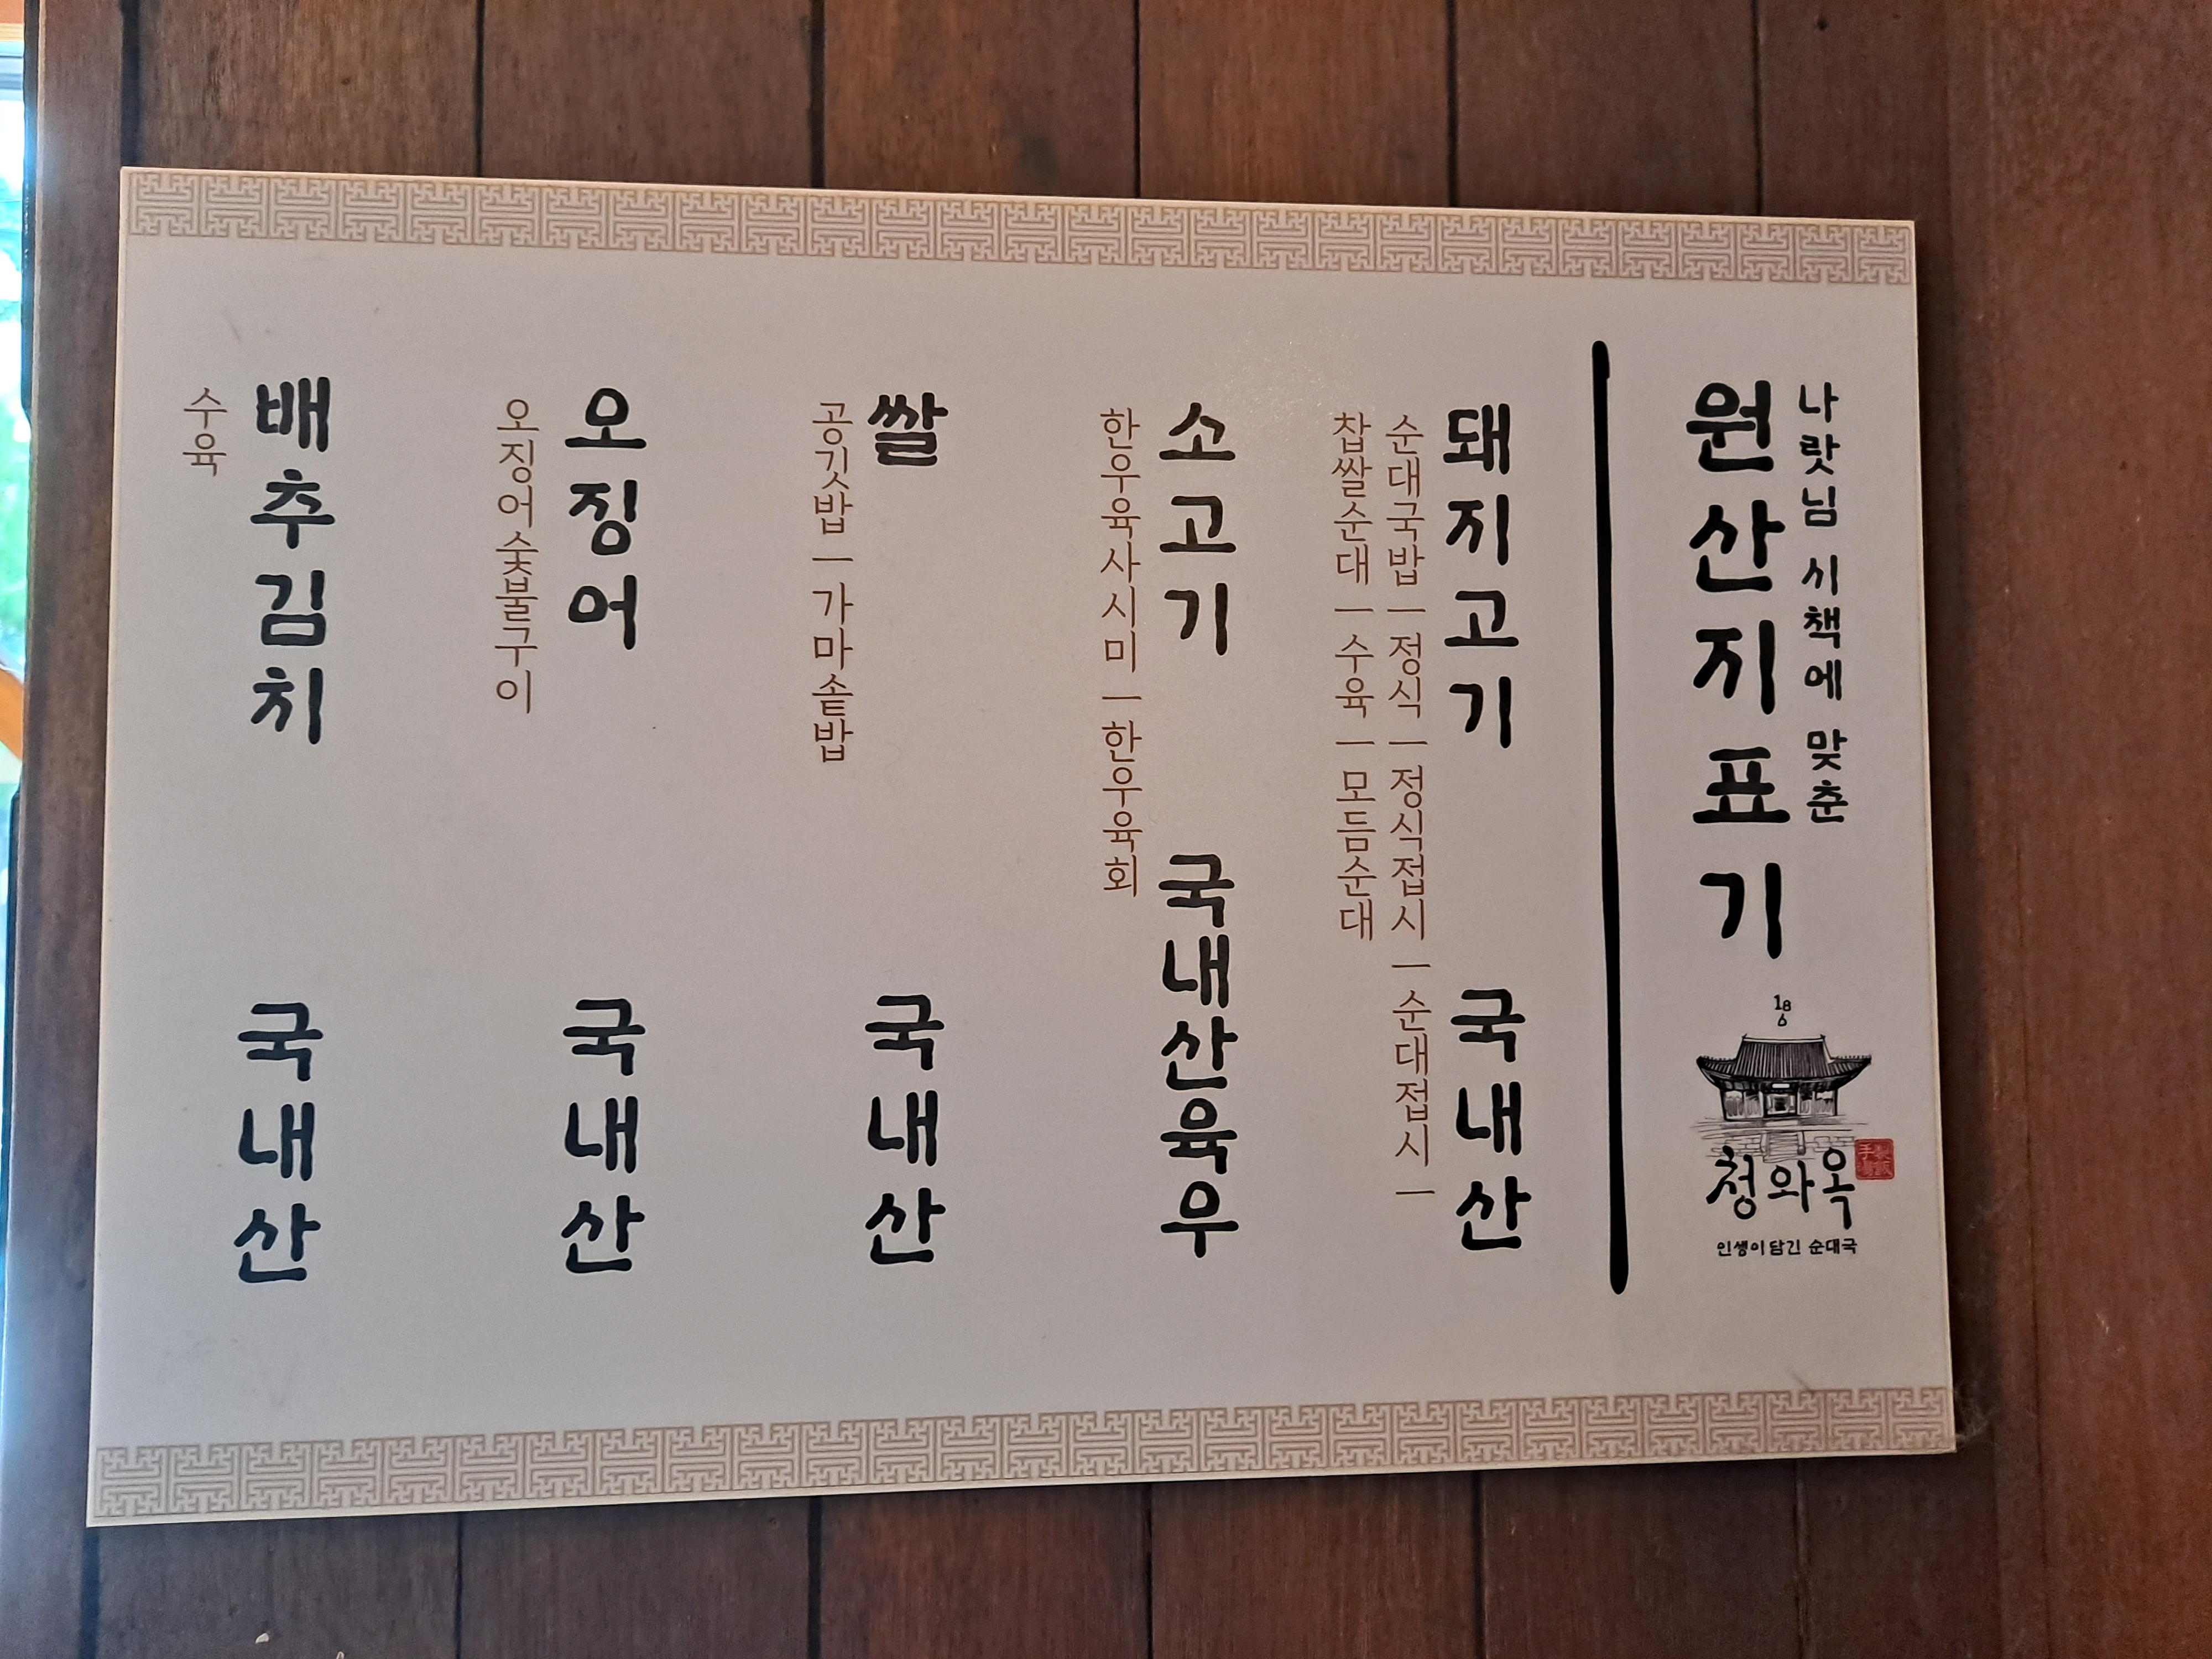 나랏님 시책에 맞춘
원산지표기
186
청와옥
인생이 담긴 순대국
돼지고기 국내산
순대국밥 ㅣ 정식 ㅣ 정식접시 ㅣ 순대접시 ㅣ
찹쌀순대 ㅣ 수육 ㅣ 모듬순대
소고기 국내산육우
한우육사시미 ㅣ 한우육회
쌀 국내산
공깃밥 ㅣ 가마솥밥
오징어 국내산
오징어숯불구이
배추김치 국내산
수육